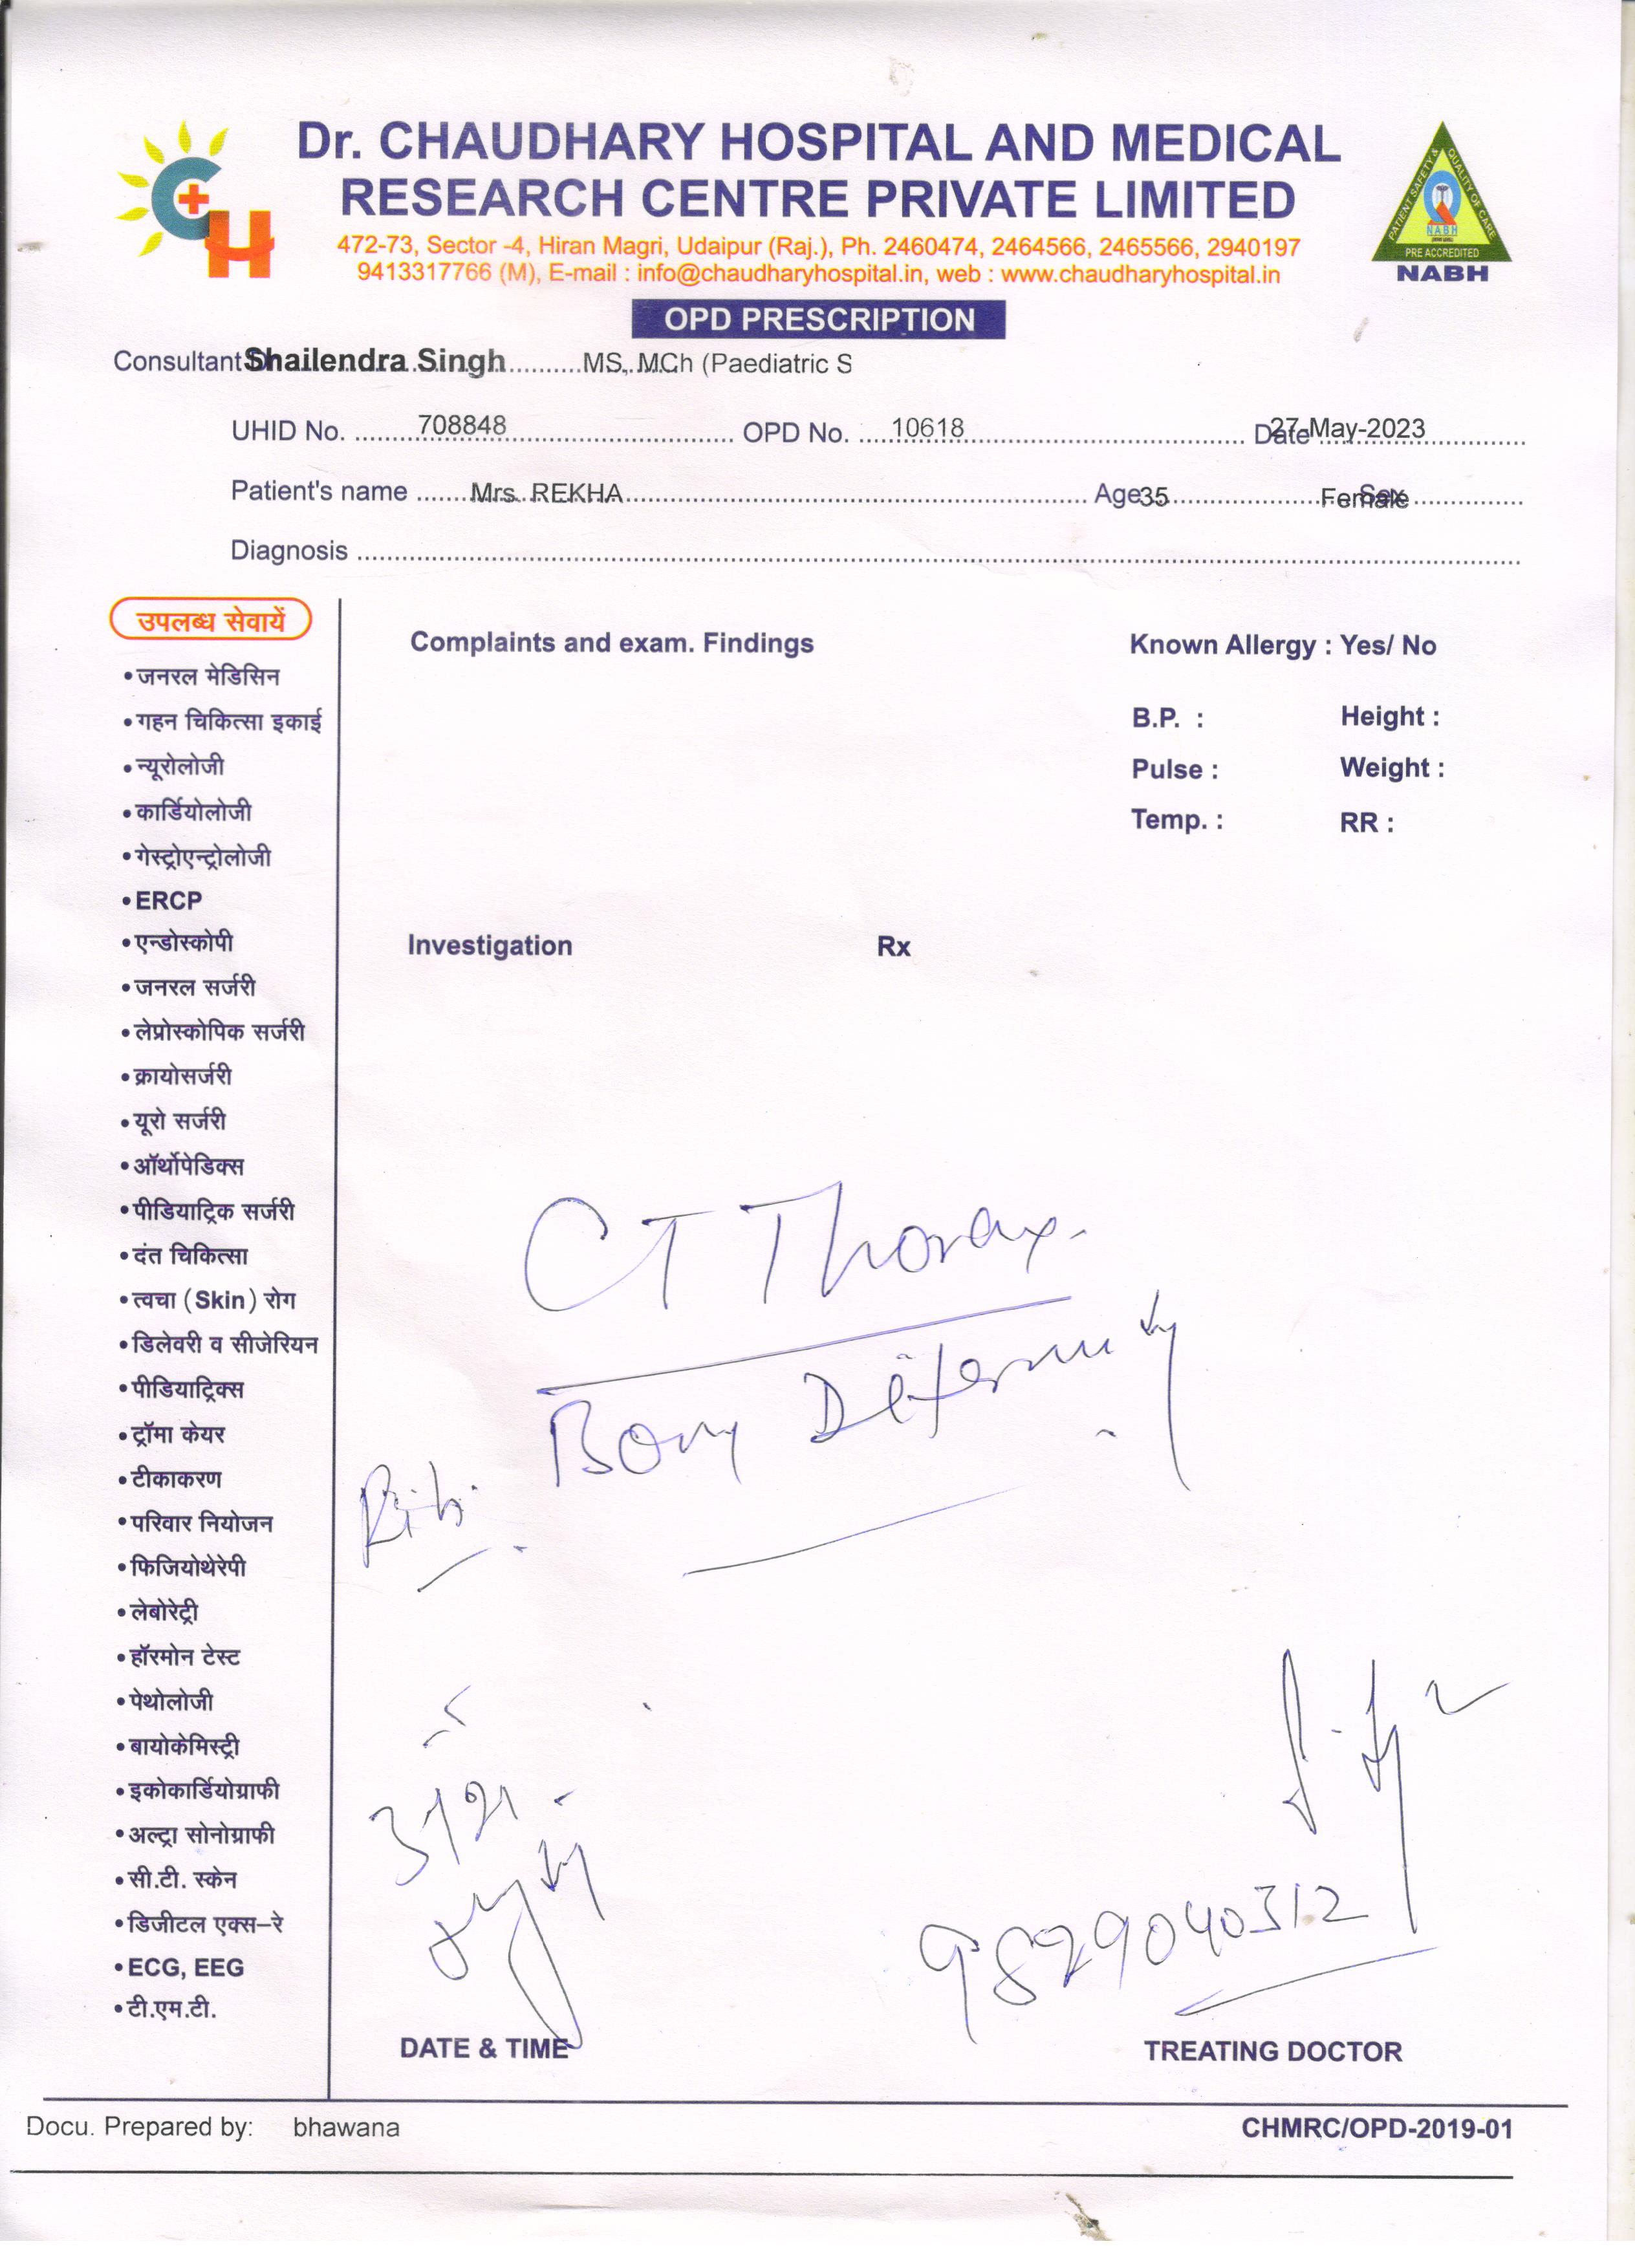 Dr. CHAUDHARY HOSPITAL AND MEDICAL
RESEARCH CENTRE PRIVATE LIMITED
472-73, Sector -4, Hiran Magri, Udaipur (Raj.), Ph. 2460474, 2464566, 2465566, 2940197
9413317766 (M), E-mail : info@chaudharyhospital.in, web : www.chaudharyhospital.in
PATIENT SAFETY & QUALITY OF CARE
NABH
PRE ACCREDITED
NABH
OPD PRESCRIPTION
Consultant Shailendra Singh MS, MCh (Paediatric S
UHID No. 708848 OPD No. 10618 Date 27-May-2023
Patient's name Mrs. REKHA Age 35 Sex Female
Diagnosis
उपलब्ध सेवायें
• जनरल मेडिसिन
• गहन चिकित्सा इकाई
• न्यूरोलोजी
• कार्डियोलोजी
• गेस्ट्रोएन्ट्रोलोजी
• ERCP
• एन्डोस्कोपी
• जनरल सर्जरी
• लेप्रोस्कोपिक सर्जरी
• क्रायोसर्जरी
• यूरो सर्जरी
• ऑर्थोपेडिक्स
• पीडियाट्रिक सर्जरी
• दंत चिकित्सा
• त्वचा (Skin) रोग
• डिलेवरी व सीजेरियन
• पीडियाट्रिक्स
• ट्रॉमा केयर
• टीकाकरण
• परिवार नियोजन
• फिजियोथेरेपी
• लेबोरेट्री
• हॉरमोन टेस्ट
• पेथोलोजी
• बायोकेमिस्ट्री
• इकोकार्डियोग्राफी
• अल्ट्रा सोनोग्राफी
• सी.टी. स्केन
• डिजीटल एक्स-रे
• ECG, EEG
• टी.एम.टी.
Complaints and exam. Findings
Known Allergy : Yes/ No
B.P. : Height :
Pulse : Weight :
Temp. : RR :
Investigation Rx
CT Thorax.
Bony Deformity
Rib.
9829040312
DATE & TIME TREATING DOCTOR
Docu. Prepared by: bhawana CHMRC/OPD-2019-01